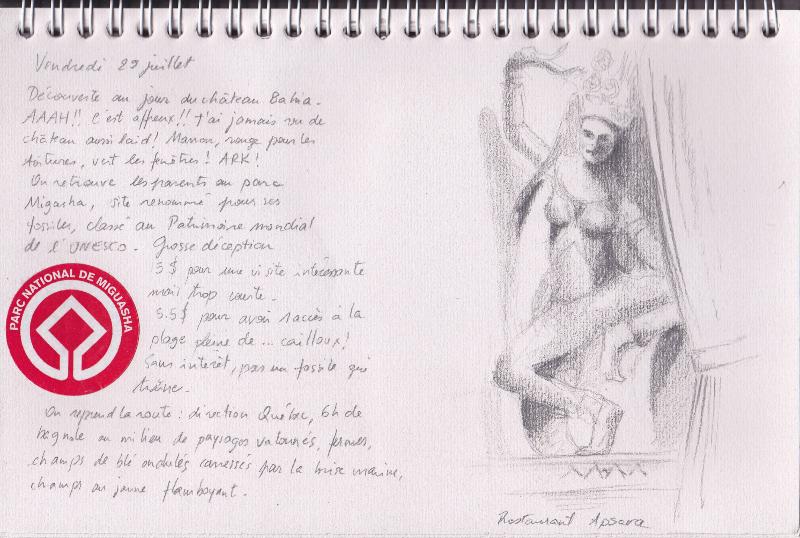 Vendredi 29 juillet
Découverte au jour du château Bahia.
AAAH!! C'est affreux!! J'ai jamais vu de
château aussi laid! Marron, rouge pour les
toitures, vert les fenêtres! ARK!
On retrouve les parents au parc
Migasha, site renommé pour ses
fossiles, classé au Patrimoine mondial
de l'UNESCO. Grosse déception
5$ pour une visite intéressante
mais trop courte.
5.5$ pour avoir accès à la
plage pleine de ... cailloux!
Sans intérêt, pas un fossile qui
traîne.
On reprend la route : direction Québec, 6h de
bagnole au milieu de paysages vallonés, fermes,
champs de blé ondulés caressés par la brise marine,
champs au jaune flamboyant.
PARC NATIONAL DE MIGUASHA
Restaurant Apsara